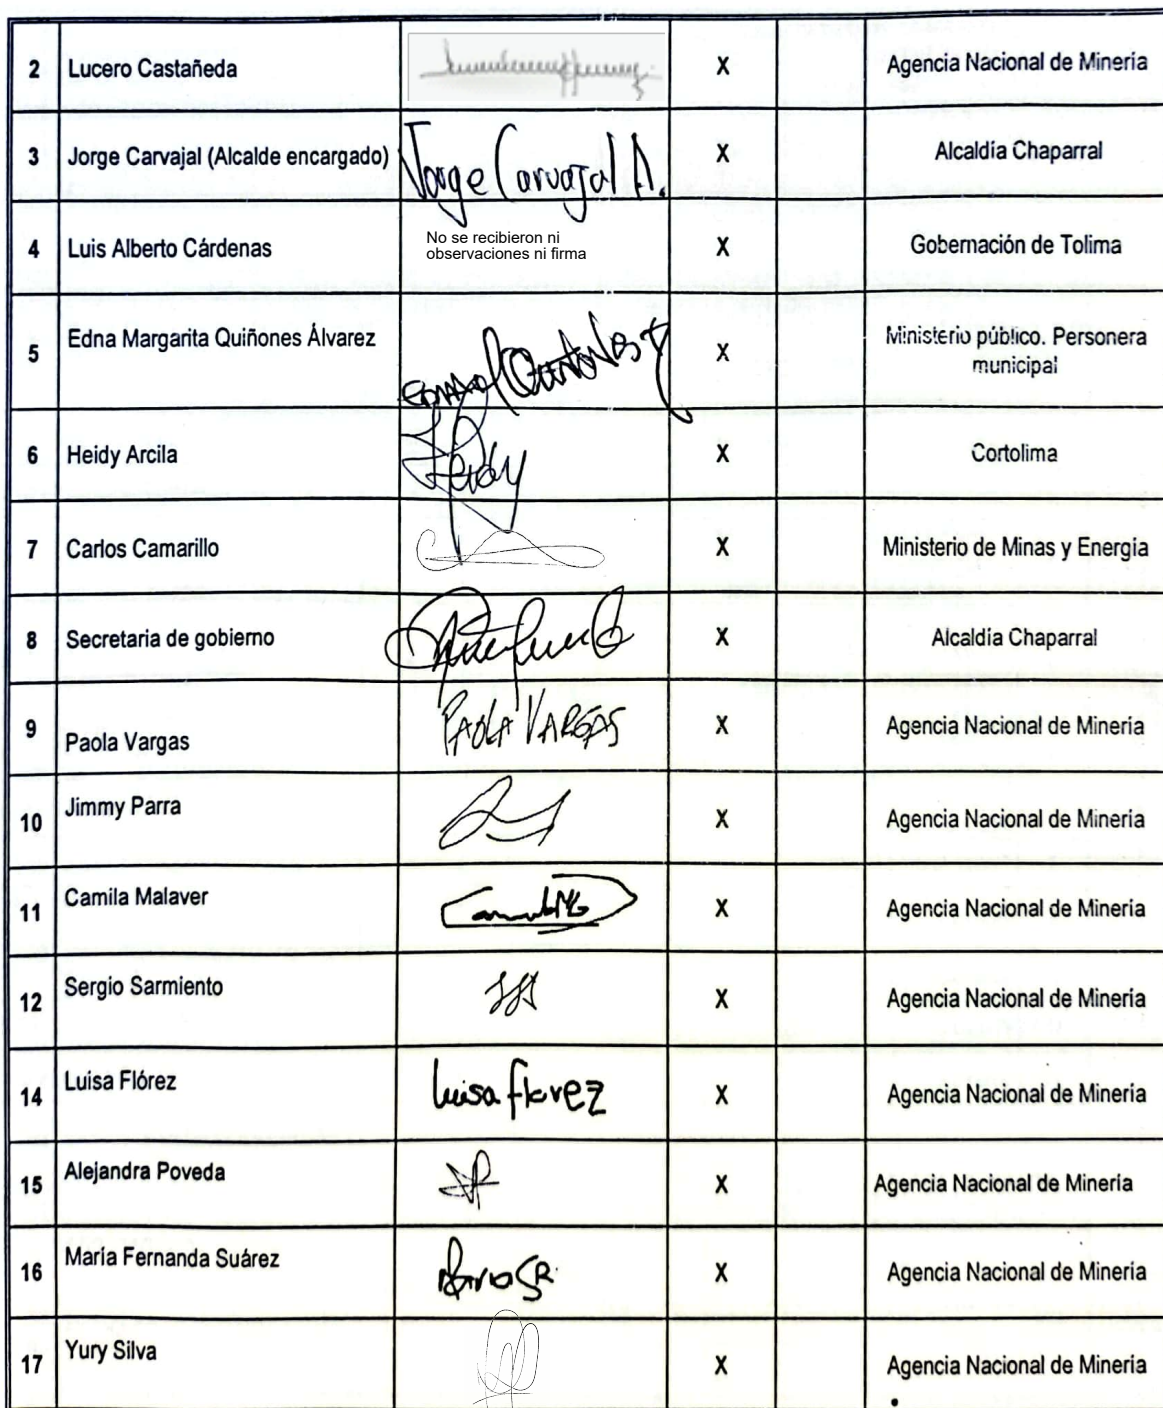 2 Lucero Castañeda X Agencia Nacional de Minería
3 Jorge Carvajal (Alcalde encargado) Jorge Carvajal A. X Alcaldía Chaparral
4 Luis Alberto Cárdenas No se recibieron ni
observaciones ni firma X Gobernación de Tolima
5 Edna Margarita Quiñones Álvarez X Ministerio público. Personera
municipal
6 Heidy Arcila Heidy X Cortolima
7 Carlos Camarillo X Ministerio de Minas y Energía
8 Secretaria de gobierno X Alcaldía Chaparral
9 Paola Vargas PAOLA VARGAS X Agencia Nacional de Minería
10 Jimmy Parra X Agencia Nacional de Minería
11 Camila Malaver X Agencia Nacional de Minería
12 Sergio Sarmiento X Agencia Nacional de Minería
14 Luisa Flórez luisa florez X Agencia Nacional de Minería
15 Alejandra Poveda X Agencia Nacional de Minería
16 María Fernanda Suárez X Agencia Nacional de Minería
17 Yury Silva X Agencia Nacional de Minería